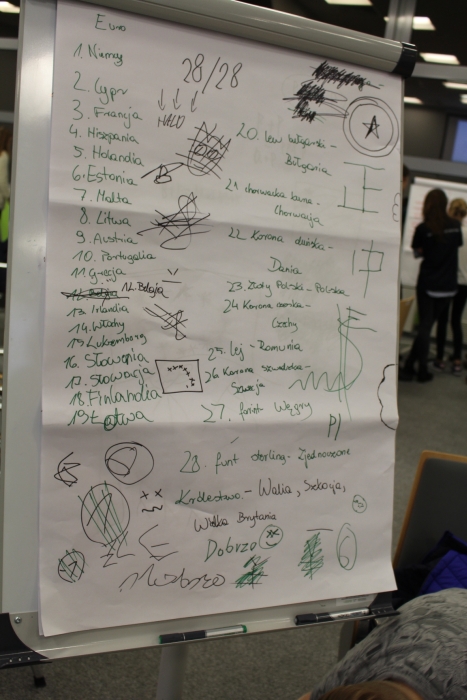 Euro
1. Niemcy
2. Cypr
3. Francja
4. Hiszpania
5. Holandia
6. Estonia
7. Malta
8. Litwa
9. Austria
10. Portugalia
11. Grecja
12. Belgia
13. Irlandia
14. Włochy
15 Luksemburg
16. Słowenia
17. Słowacja
18. Finlandia
19 Łotwa
28/28
20. lew bułgarski -
Bułgaria
21 chorwacka kuna -
Chorwacja
22. Korona duńska -
Dania
23. Złoty Polski - Polska
24 Korona czeska -
Czechy
25. lej - Rumunia
26 Korona szwedzka -
Szwecja
27. forint Węgry
28. funt sterling - Zjednoczone
Królestwo - Walia, Szkocja,
Wielka Brytania
Dobrze